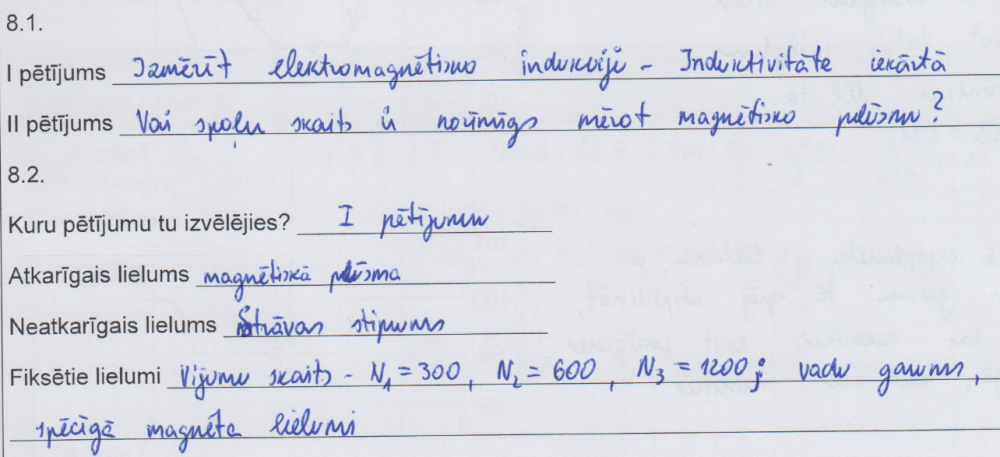 8.1.
I pētījums Izmērīt elektromagnētisko indukciju - Induktivitāte iekārtā
II pētījums Vai spoļu skaits ir nozīmīgs mērot magnētisko plūsmu?
8.2.
Kuru pētījumu tu izvēlējies? I pētījumu
Atkarīgais lielums magnētiskā plūsma
Neatkarīgais lielums Strāvas stiprums
Fiksētie lielumi Vijumu skaits - N₁ = 300, N₂ = 600, N₃ = 1200; vadu garums,
spēcīgā magnēta lielumi